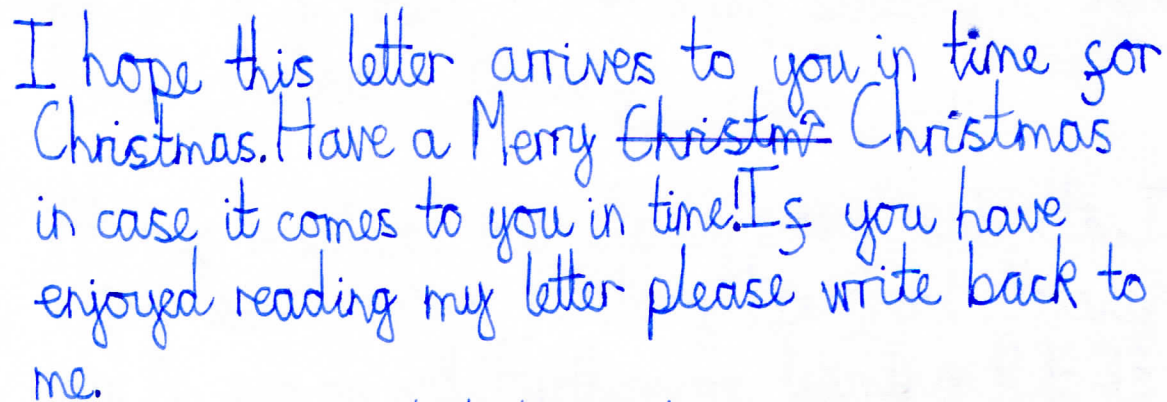 I hope this letter arrives to you in time for
Christmas. Have a Merry Christmas
in case it comes to you in time! If you have
enjoyed reading my letter please write back to
me.